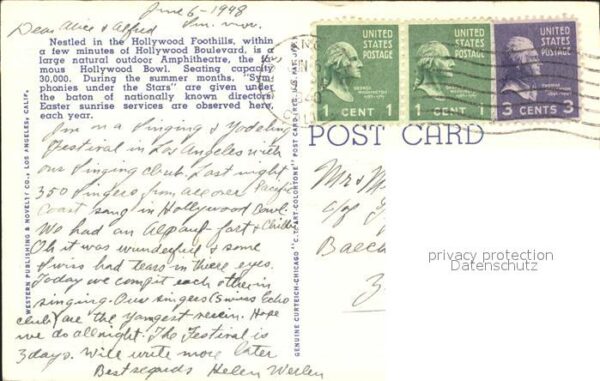 June 6-1948
Dear Alice & Alfred
Nestled in the Hollywood Foothills, within
a few minutes of Hollywood Boulevard, is a
large natural outdoor Amphitheatre, the fa-
mous Hollywood Bowl. Seating capacity
30,000. During the summer months, "Sym-
phonies under the Stars" are given under
the baton of nationally known directors.
Easter sunrise services are observed here,
each year.
I'm on a Singing & Yodeling
Festival in Los Angeles with
our Singing club. Last night
350 Singers from all over Pacific
Coast sang in Hollywood Bowl.
We had an Alpauf fart &
Oh it was wunderful & some
Swiss had tears in there eyes.
Today we compit each other in
singing. Our singers (Swiss Echo
club) are the yangest Hope
we do allnight. The Festival is
3 days. Will write more later
Best regards Helen
WESTERN PUBLISHING & NOVELTY CO., LOS ANGELES, CALIF.
GENUINE CURTEICH-CHICAGO "C.T. ART-COLORTONE" POST CARD (REG. U.S. PAT. OFF.)
UNITED
STATES
POSTAGE
GEORGE
WASHINGTON
1 CENT 1
UNITED
STATES
POSTAGE
GEORGE
WASHINGTON
1 CENT 1
UNITED
STATES
POSTAGE
3 CENTS 3
POST CARD
Mr & M
c/o
Baech
3
privacy protection
Datenschutz